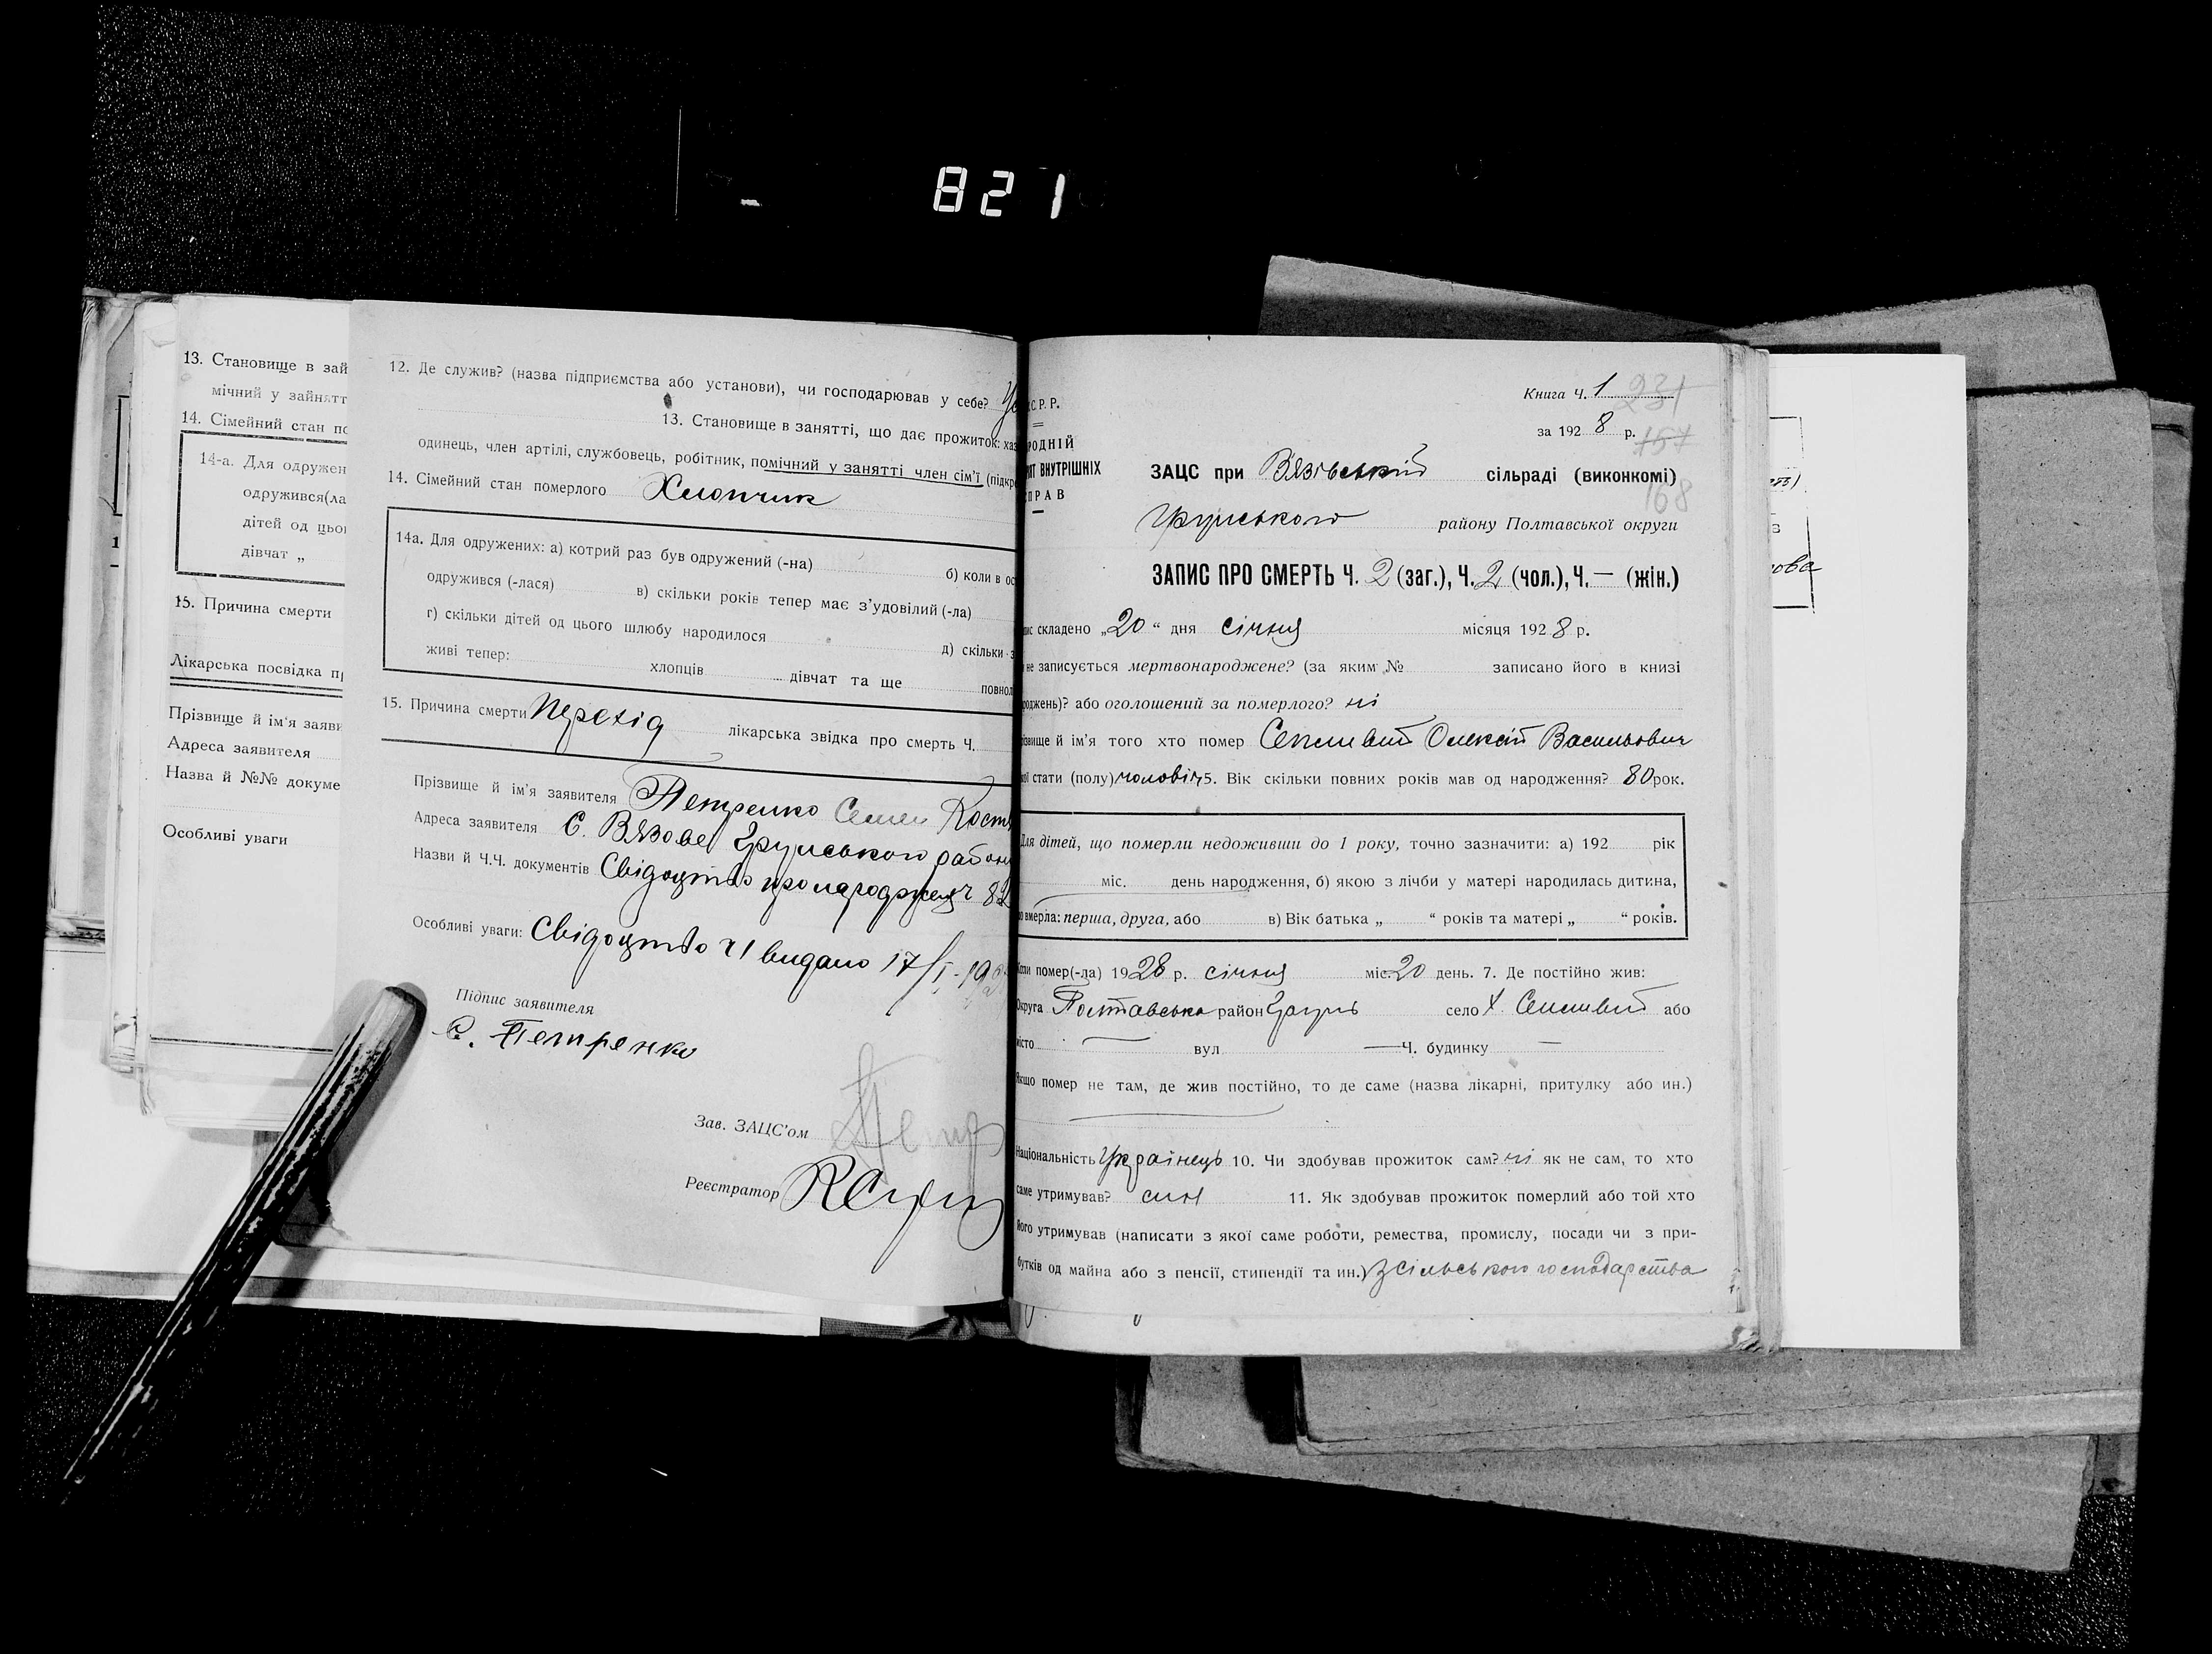 821
13. Становище в зай
мічний у зайнятт
14. Сімейний стан по
14-а. Для одружен
одружився(ла
дітей од цьо
дівчат „
15. Причина смерти
Лікарська посвідка п
Прізвище й ім'я заяви
Адреса заявителя
Назва й №№ докуме
Особливі уваги
12. Де служив? (назва підприємства або установи), чи господарював у себе?
13. Становище в занятті, що дає прожиток: хаз
одинець, член артілі, службовець, робітник, помічний у занятті член сім'ї (підкр
14. Сімейний стан померлого Хлопчик
14а. Для одружених: а) котрий раз був одружений (-на) б) коли в ос
одружився (-лася) в) скільки років тепер має з'удовілий (-ла)
г) скільки дітей од цього шлюбу народилося д) скільки з
живі тепер: хлопців дівчат та ще повнол
15. Причина смерти лікарська звідка про смерть Ч.
Прізвище й ім'я заявителя Петренко Семен Кост
Адреса заявителя С. Вязове Грунського район
Назви й Ч.Ч. документів Свідоцтво про народження ч 82
Особливі уваги: Свідоцтво ч 1 видано 17/I-192
Підпис заявителя
С. Петренко
Зав. ЗАЦС'ом Петр
Реєстратор
С.Р.Р.
РОДНІЙ
ЯТ ВНУТРІШНІХ
ПРАВ
Книга Ч. 1 231
за 192 8 р. 157
ЗАЦС при Вязівський сільраді (виконкомі)
168
Грунського району Полтавської округи
ЗАПИС ПРО СМЕРТЬ Ч. 2 (заг.), Ч. 2 (чол.), Ч. — (жін.)
ис складено „20“ дня січня місяця 192 8 р.
не записується мертвонароджене? (за яким № записано його в книзі
роджень)? або оголошений за померлого? ні
ізвище й ім'я того хто помер Сепливий Олексій Васильович
ої стати (полу) чоловіч 5. Вік скільки повних років мав од народження? 80 рок.
Для дітей, що померли недоживши до 1 року, точно зазначити: а) 192 рік
міс. день народження, б) якою з лічби у матері народилась дитина,
о вмерла: перша, друга, або в) Вік батька „ “ років та матері „ “ років.
Коли помер(-ла) 1928 р. січня міс. 20 день. 7. Де постійно жив:
Округа Полтавська район Грунь село х. Сепливий або
місто — вул — Ч. будинку —
Якщо помер не там, де жив постійно, то де саме (назва лікарні, притулку або ин.)
Національність Українець 10. Чи здобував прожиток сам? ні як не сам, то хто
саме утримував? син 11. Як здобував прожиток померлий або той хто
його утримував (написати з якої саме роботи, ремества, промислу, посади чи з при-
бутків од майна або з пенсії, стипендії та ин.) З сільського господарства